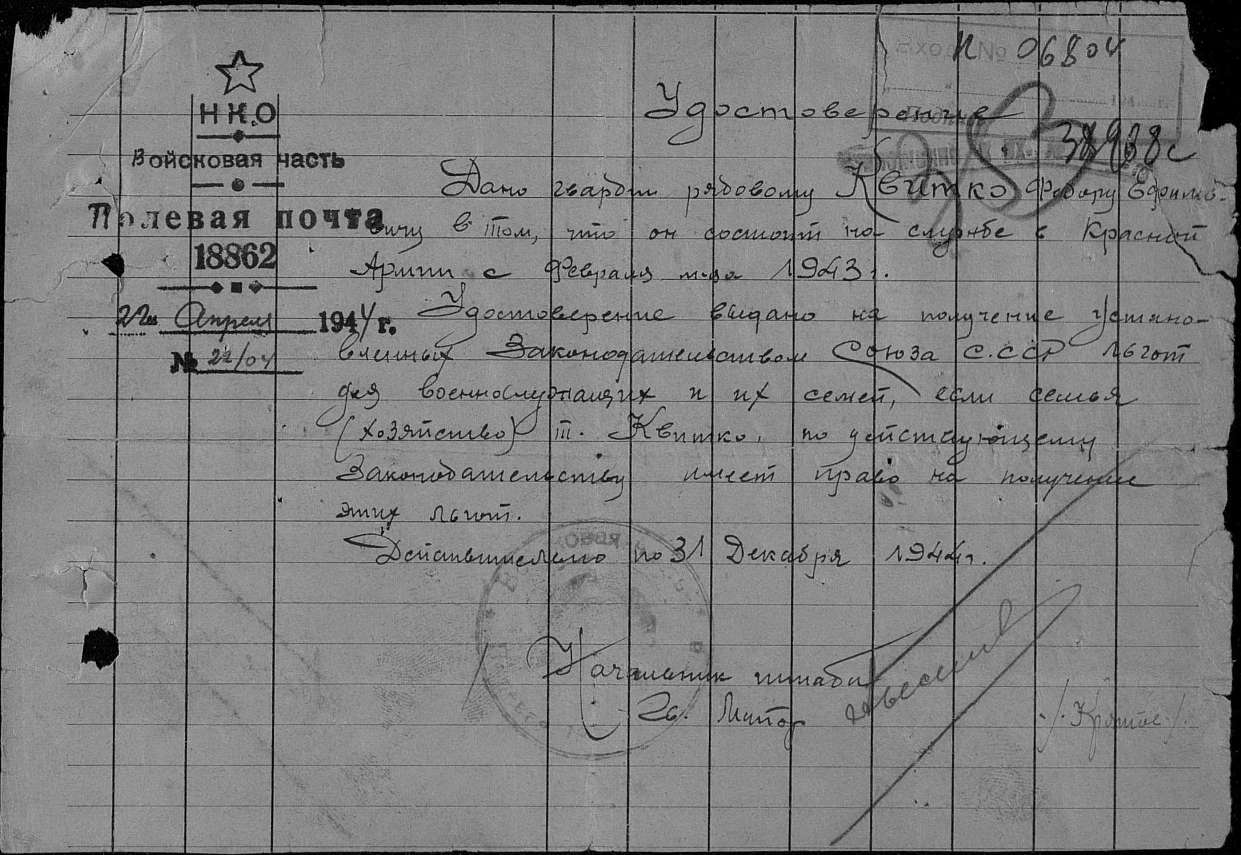 И 06804
НКО
Удостоверение
Войсковая часть
Дано гвардии рядовому Квитко Федору Ефимо-
Полевая почта
вичу в том, что он состоит на службе в Красной
18862
Армии с февраля м-ца 1943 г.
22 Апреля 1944 г.
Удостоверение выдано на получение устано-
№ 22/04
вленных Законодательством Союза С.ССР льгот
для военнослужащих и их семей, если семья
(хозяйство) т. Квитко, по действующему
Законодательству имеет право на получение
этих льгот.
Действительно по 31 Декабря 1944 г.
Начальник штаба
Гв. Майор